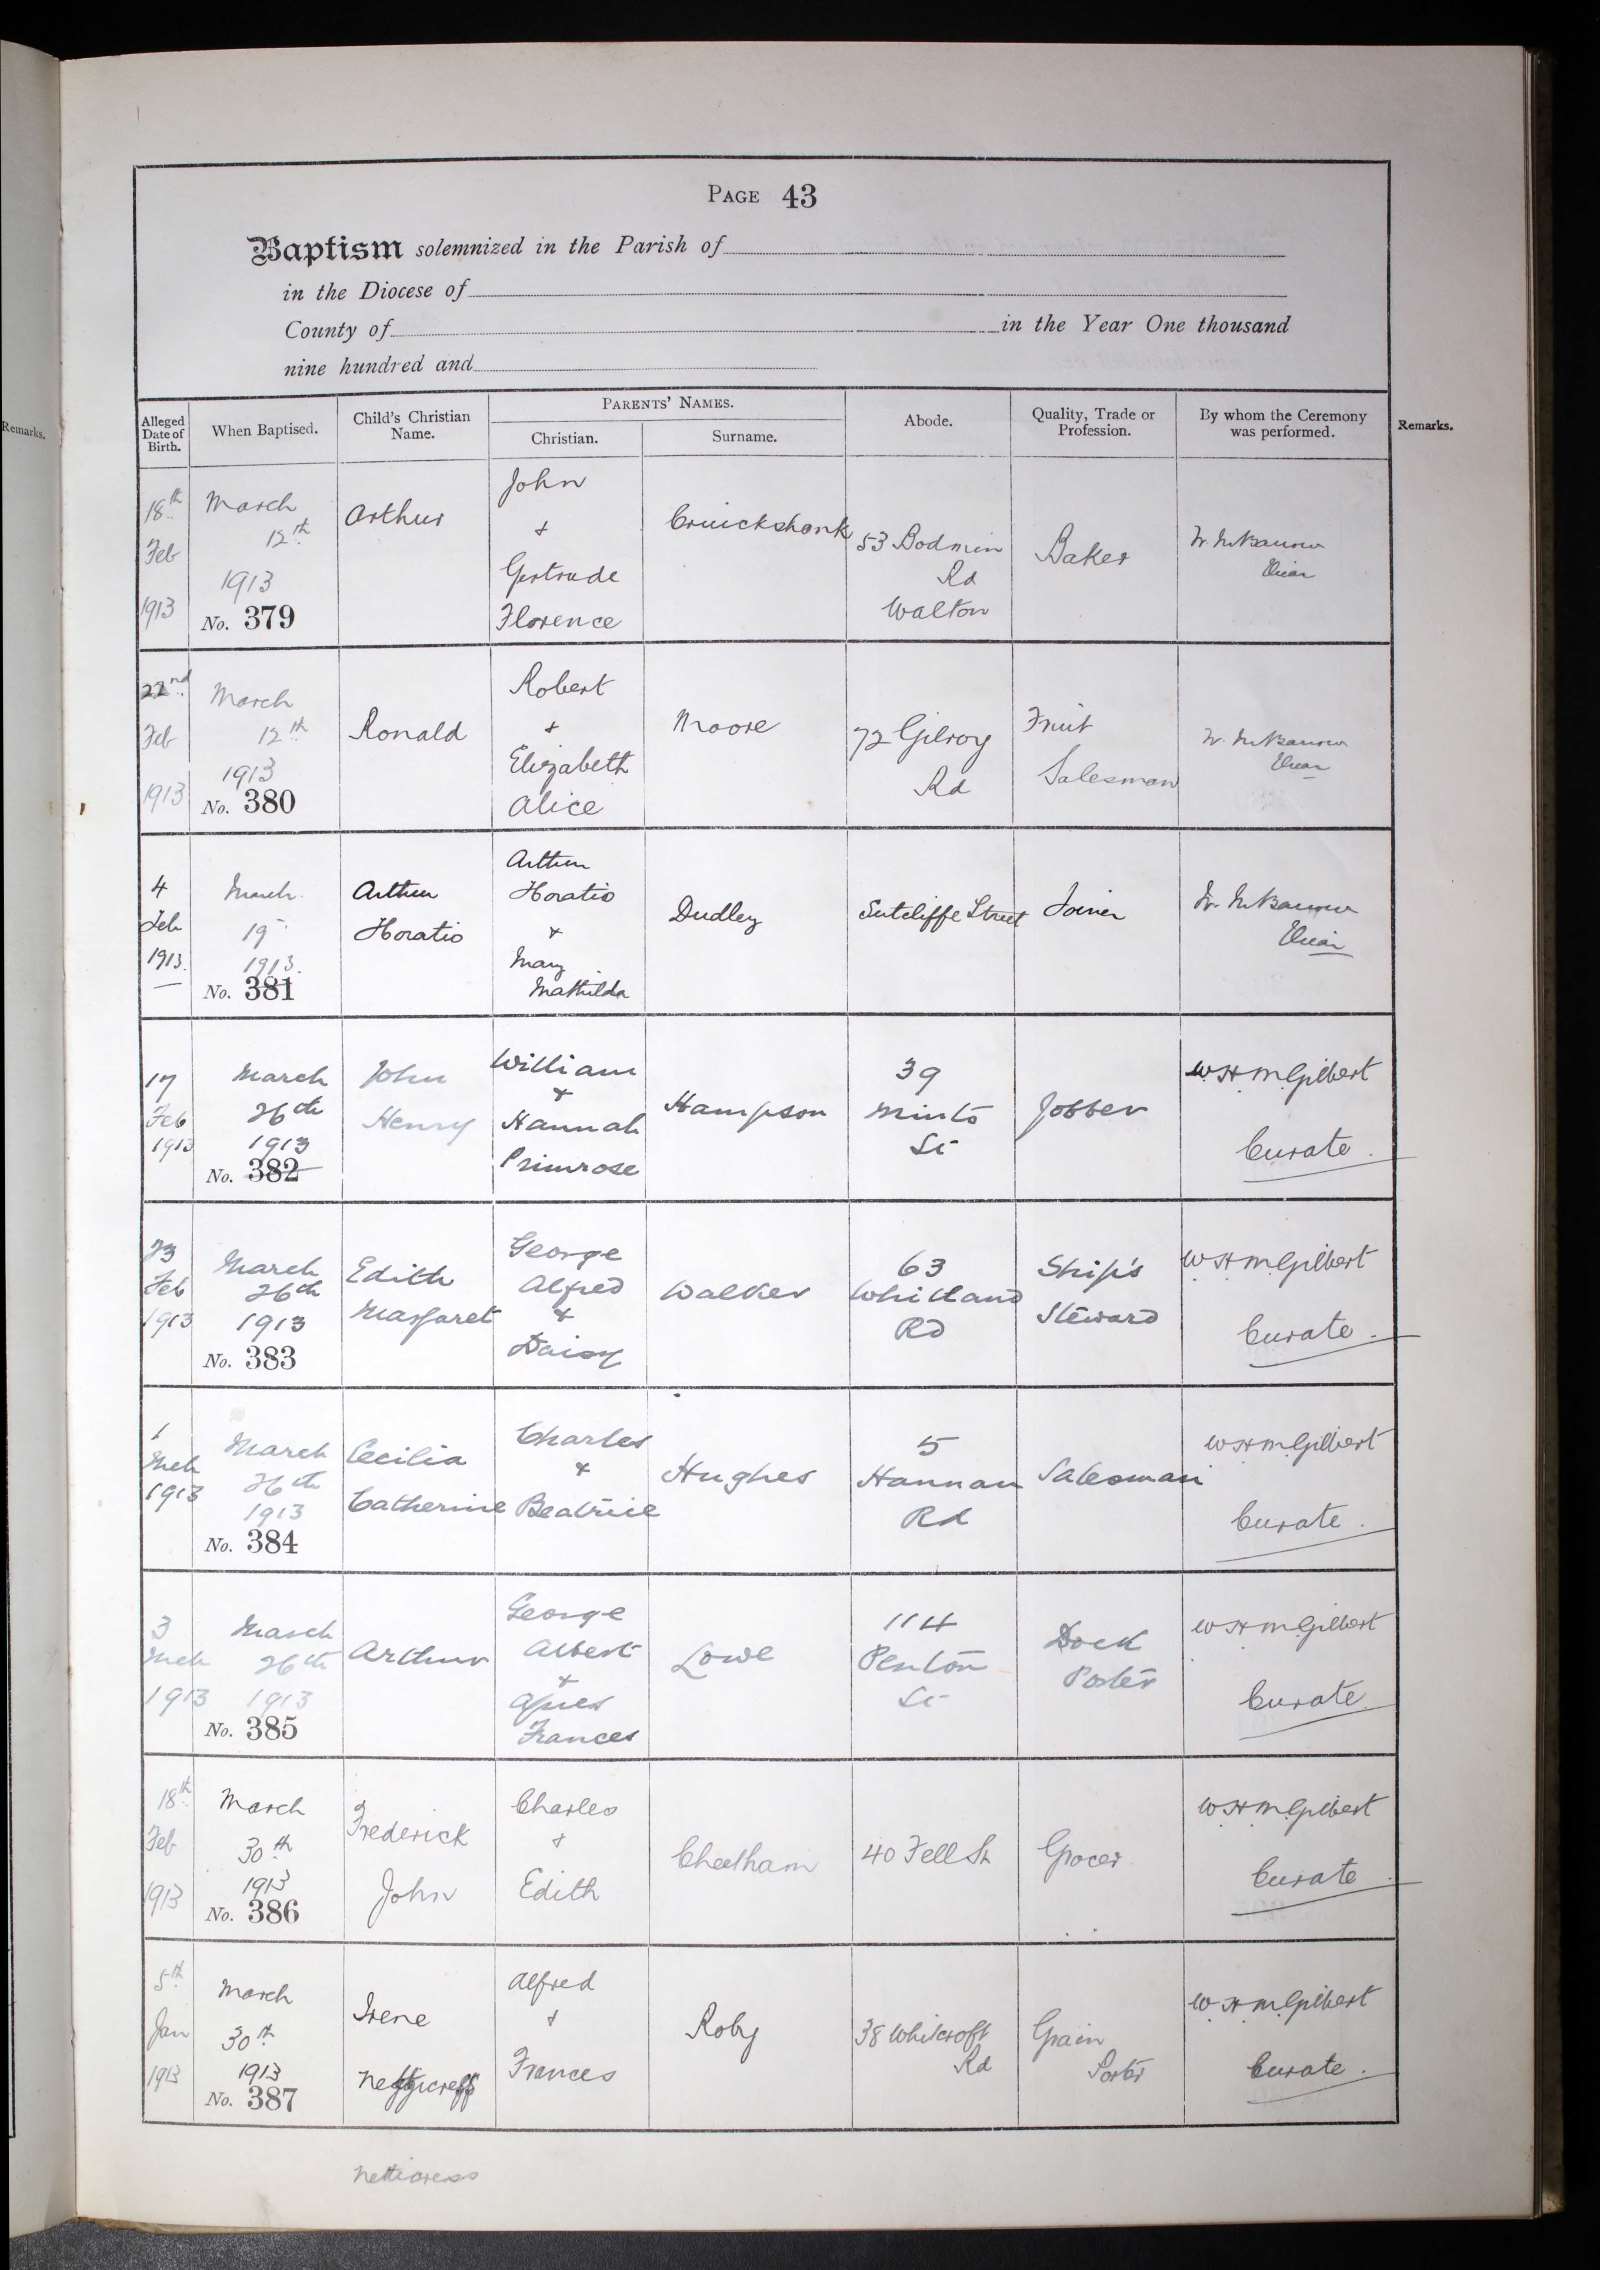 Remarks.
PAGE 43
Baptism solemnized in the Parish of
in the Diocese of
County of in the Year One thousand
nine hundred and
Alleged Date of Birth. When Baptised. Child's Christian Name. PARENTS' NAMES. Christian. Surname. Abode. Quality, Trade or Profession. By whom the Ceremony was performed. Remarks.
18th
Feb
1913
March
12th
1913
No. 379
Arthur
John
+
Gertrude
Florence
Cruickshank
53 Bodmin
Rd
Walton
Baker
22nd
Feb
1913
March
12th
1913
No. 380
Ronald
Robert
+
Elizabeth
Alice
Moore
72 Gilroy
Rd
Fruit
Salesman
4
Feb
1913.
March
19
1913.
No. 381
Arthur
Horatio
Arthur
Horatio
+
Mary
Mathilda
Dudley
Sutcliffe Street
Joiner
17
Feb
1913
March
26th
1913
No. 382
John
Henry
William
+
Hannah
Primrose
Hampson
39
Minto
St
Jobber
W.H.M. Gilbert
Curate.
23
Feb
1913
March
26th
1913
No. 383
Edith
Margaret
George
Alfred
+
Daisy
Walker
63
Whitland
Rd
Ship's
Steward
W.H.M. Gilbert
Curate.
1
Mch
1913
March
26th
1913
No. 384
Cecilia
Catherine
Charles
+
Beatrice
Hughes
5
Hannan
Rd
Salesman
W.H.M. Gilbert
Curate.
3
Mch
1913
March
26th
1913
No. 385
Arthur
George
Albert
+
Agnes
Frances
Lowe
114
Penton
St
Dock
Porter
W.H.M. Gilbert
Curate.
18th
Feb
1913
March
30th
1913
No. 386
Frederick
John
Charles
+
Edith
Cheetham
40 Fell St
Grocer
W.H.M. Gilbert
Curate.
5th
Jan
1913
March
30th
1913
No. 387
Irene
Alfred
+
Frances
Roby
38 Whitcroft
Rd
Grain
Porter
W.H.M. Gilbert
Curate.
Petticress